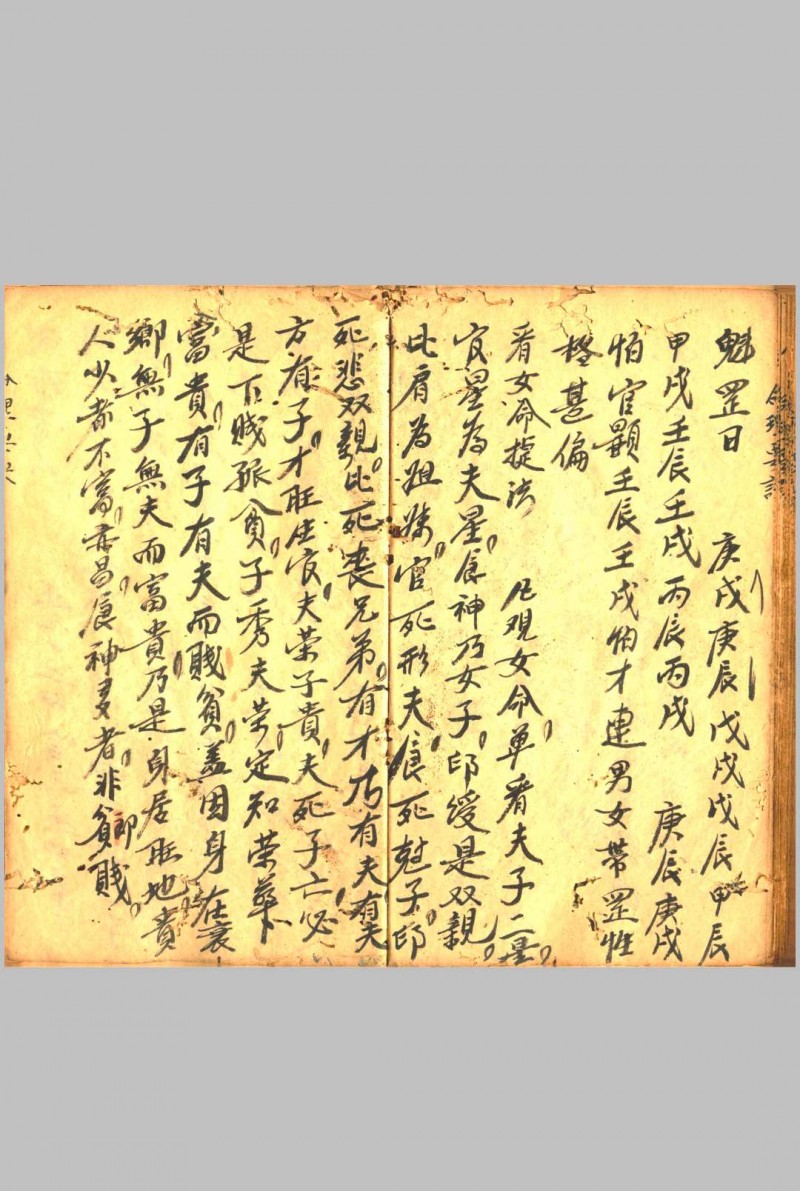 命理要訣
魁罡日 庚戌庚辰戊戌戊辰甲辰
甲戌壬辰壬戌丙辰丙戌 庚辰庚戌
怕官顯壬辰壬戌伯才連男女带罡性
極甚偏
看女命捷法 凡观女命单看夫子二星
官星為夫星食神乃女子印绶是双親
比肩為姐妹官死形夫食死尅子印
死悲双親比死丧兄弟有才方有夫有夫
方有子才旺生官夫荣子貴夫死子亡必
是下贱孤貧子秀夫荣定知荣華
富貴有子有夫而贱貧盖因身在衰
鄉無子無夫而富貴乃是身居旺地貴
人少者不富亦昌食神多者非貧卽賤